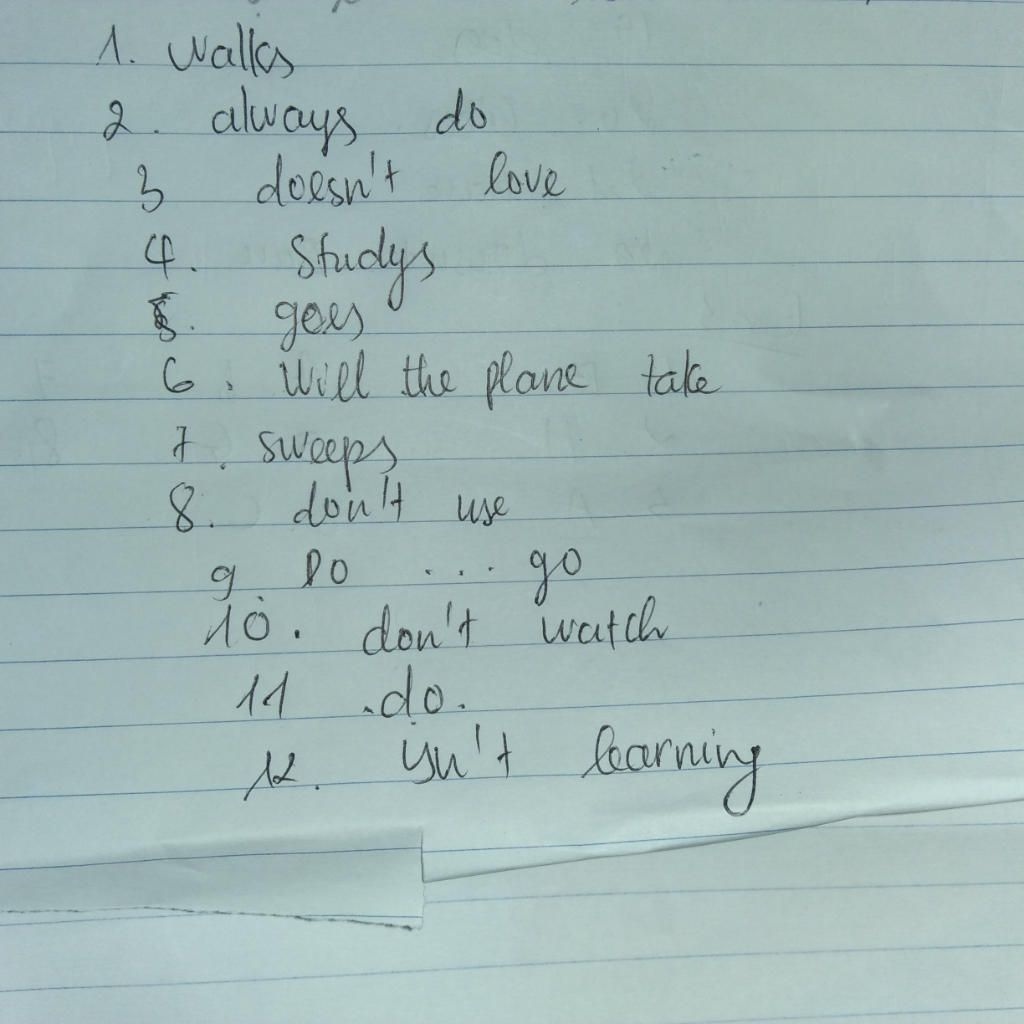 1. walks
2. always do
3 doesn't love
4. Studys
5. goes
6. Will the plane take
7. sweeps
8. don't use
9 Do ... go
10. don't watch
11 .do.
12. isn't learning